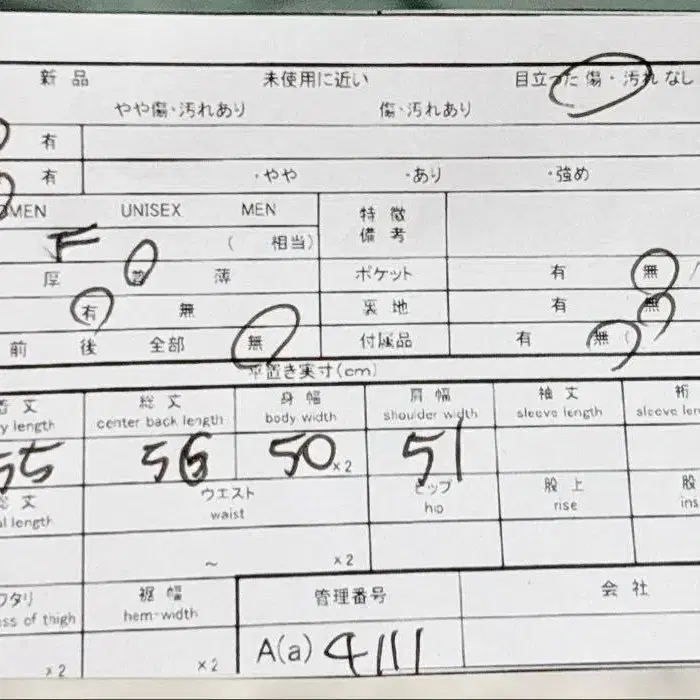 新品 未使用に近い 目立った傷・汚れなし
やや傷・汚れあり 傷・汚れあり
有
有 ・やや ・あり ・強め
OMEN UNISEX MEN 特徴
備考
F ( 相当)
厚 普 薄 ポケット 有 無 /
有 無 裏地 有 無
前 後 全部 無 付属品 有 無 (
平置き実寸(cm)
着丈 総丈 身幅 肩幅 袖丈 裄
y length center back length body width shoulder width sleeve length sleeve len
55 56 50 ×2 51
総丈 ウエスト ヒップ 股上 股
al length waist hip rise ins
~ ×2
ワタリ 裾幅 管理番号 会社
ss of thigh hem-width
×2 ×2 A(a) 4111